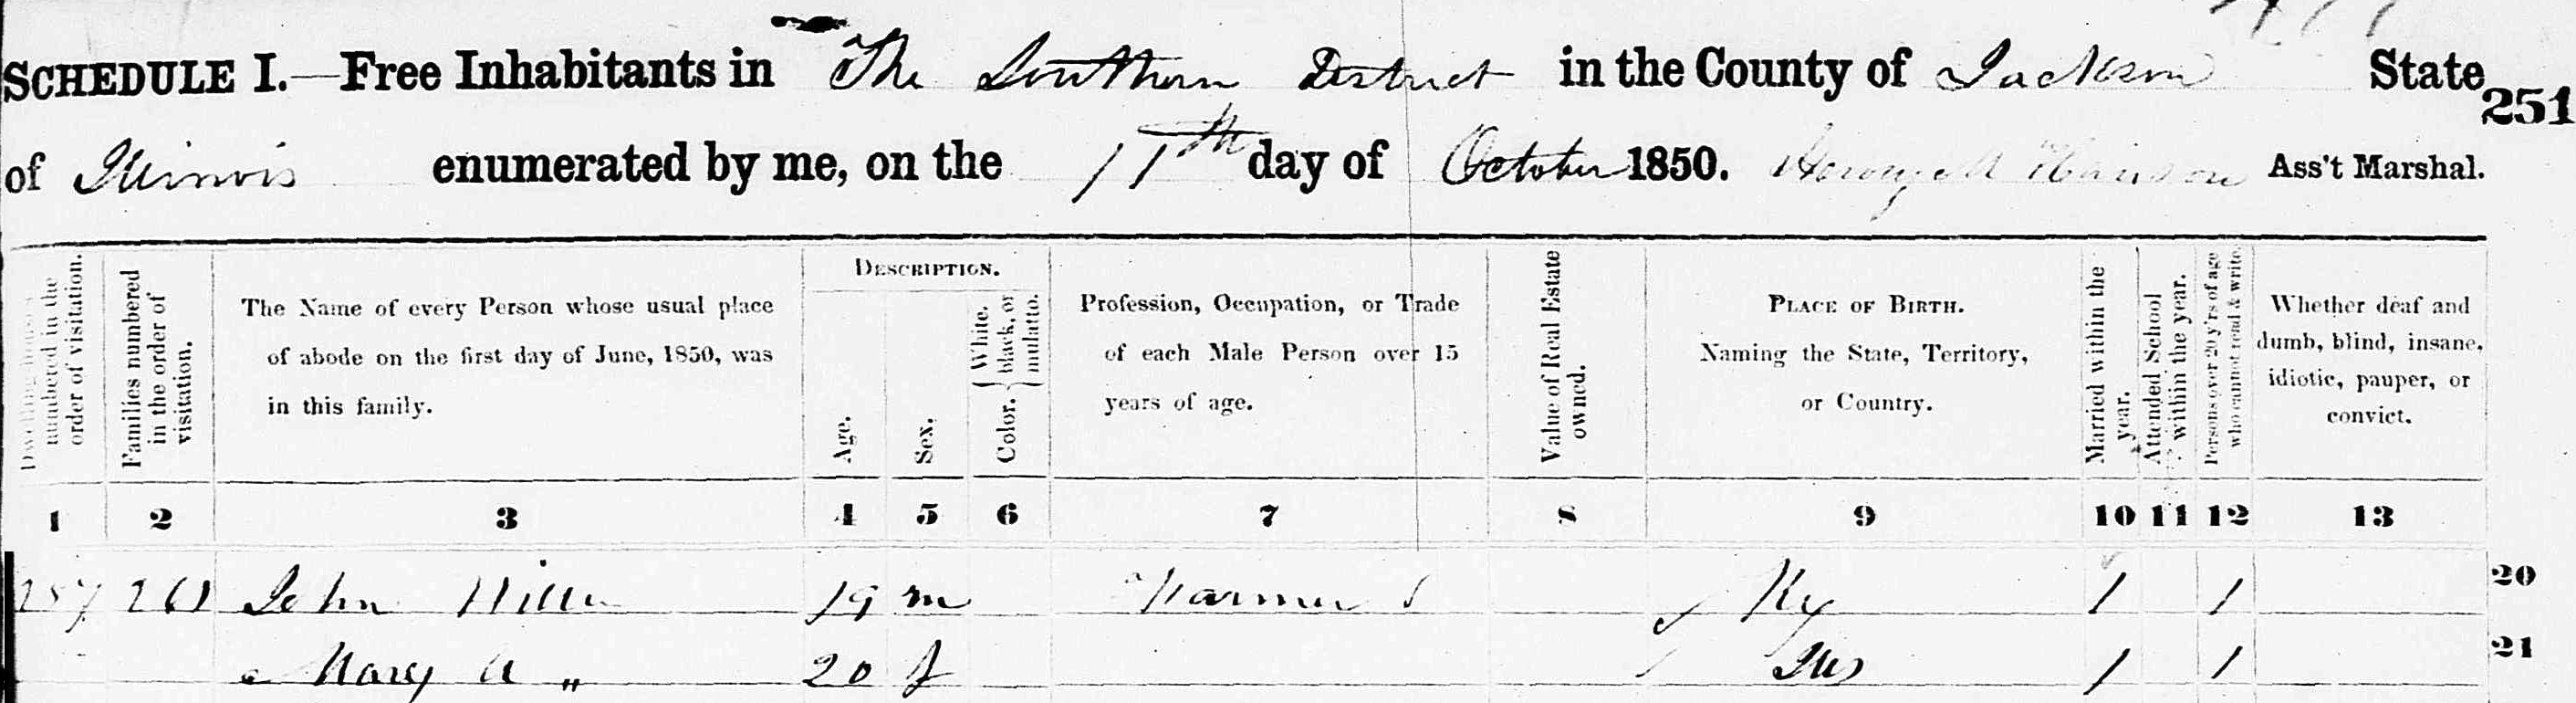 SCHEDULE I.—Free Inhabitants in The Southern District in the County of Jackson State
251
of Illinois enumerated by me, on the 11th day of October 1850. Ass't Marshal.
Dwelling-houses numbered in the order of visitation.
Families numbered in the order of visitation.
The Name of every Person whose usual place
of abode on the first day of June, 1850, was
in this family.
DESCRIPTION.
Age.
Sex.
Color. { White, black, or mulatto.
Profession, Occupation, or Trade
of each Male Person over 15
years of age.
Value of Real Estate owned.
PLACE OF BIRTH.
Naming the State, Territory,
or Country.
Married within the year.
Attended School within the year.
Persons over 20 y'rs of age who cannot read & write.
Whether deaf and
dumb, blind, insane,
idiotic, pauper, or
convict.
1 2 3 4 5 6 7 8 9 10 11 12 13
257 261 John 19 m Farmer Ky 1 1 20
Mary A " 20 f Ills 1 1 21